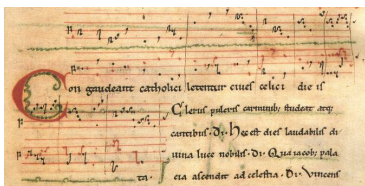 Congaudeant catholici letentur cives celici die is
Clerus pulcris carminib; studeat atq;
cantibus · Di · Hec est dies laudabilis di
uina luce nobilis · Di · Qua iacob; pala
cia ascendit ad celestia · Di · Vincens
ta ·